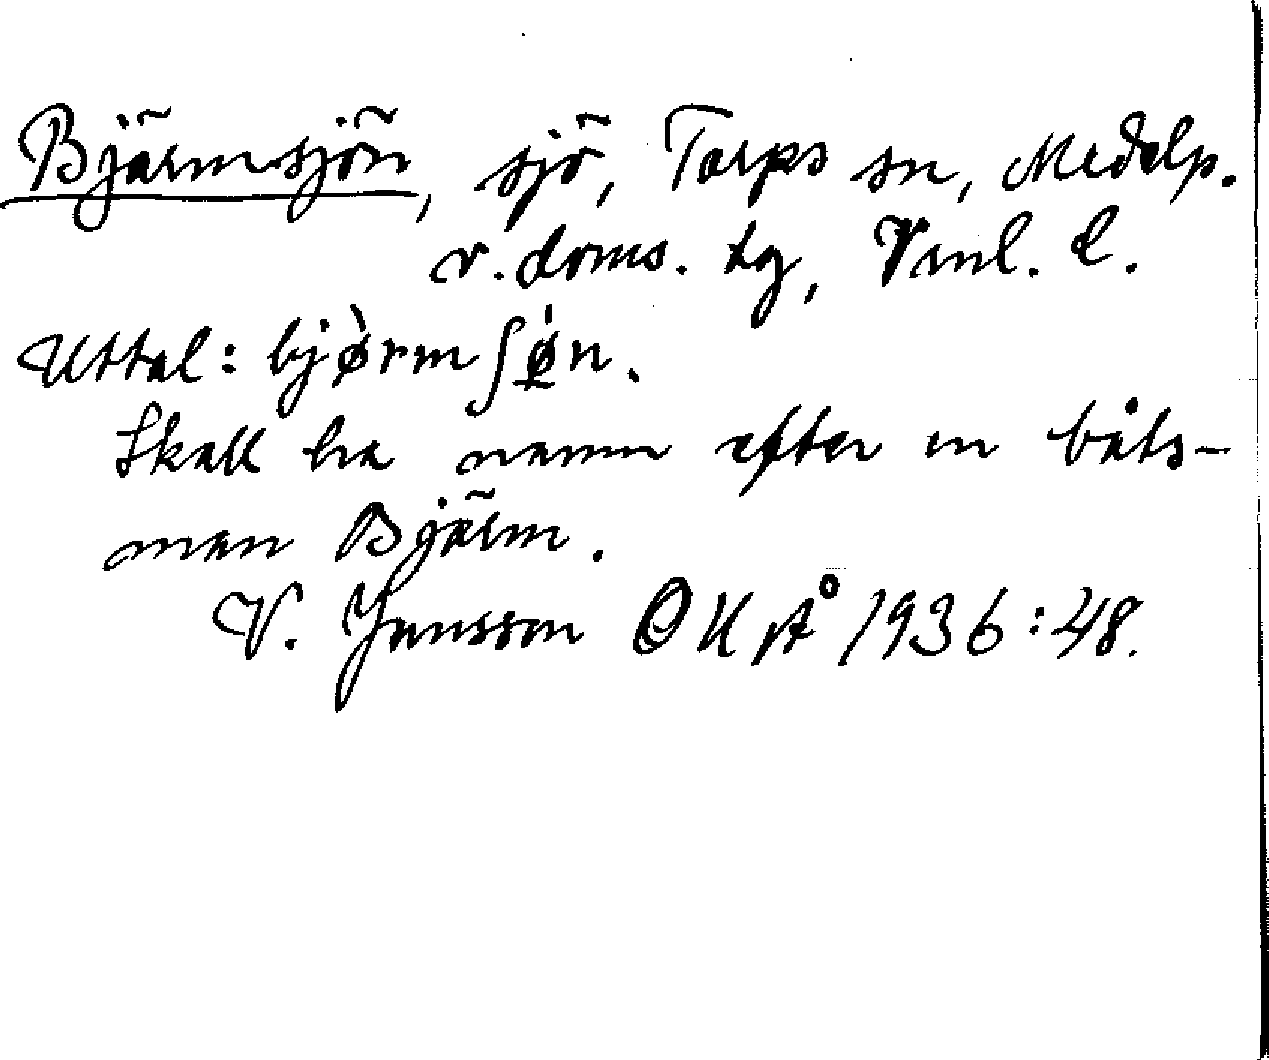 Bjärmsjön, sjö, Torps sn, Medelp.
v. doms. tg, Vnl. l.
Uttal: bjø̀rmʃǿ̣n.
Skall ha namn efter en båts-
man Bjärm.
V. Jansson OUÅ 1936:48.